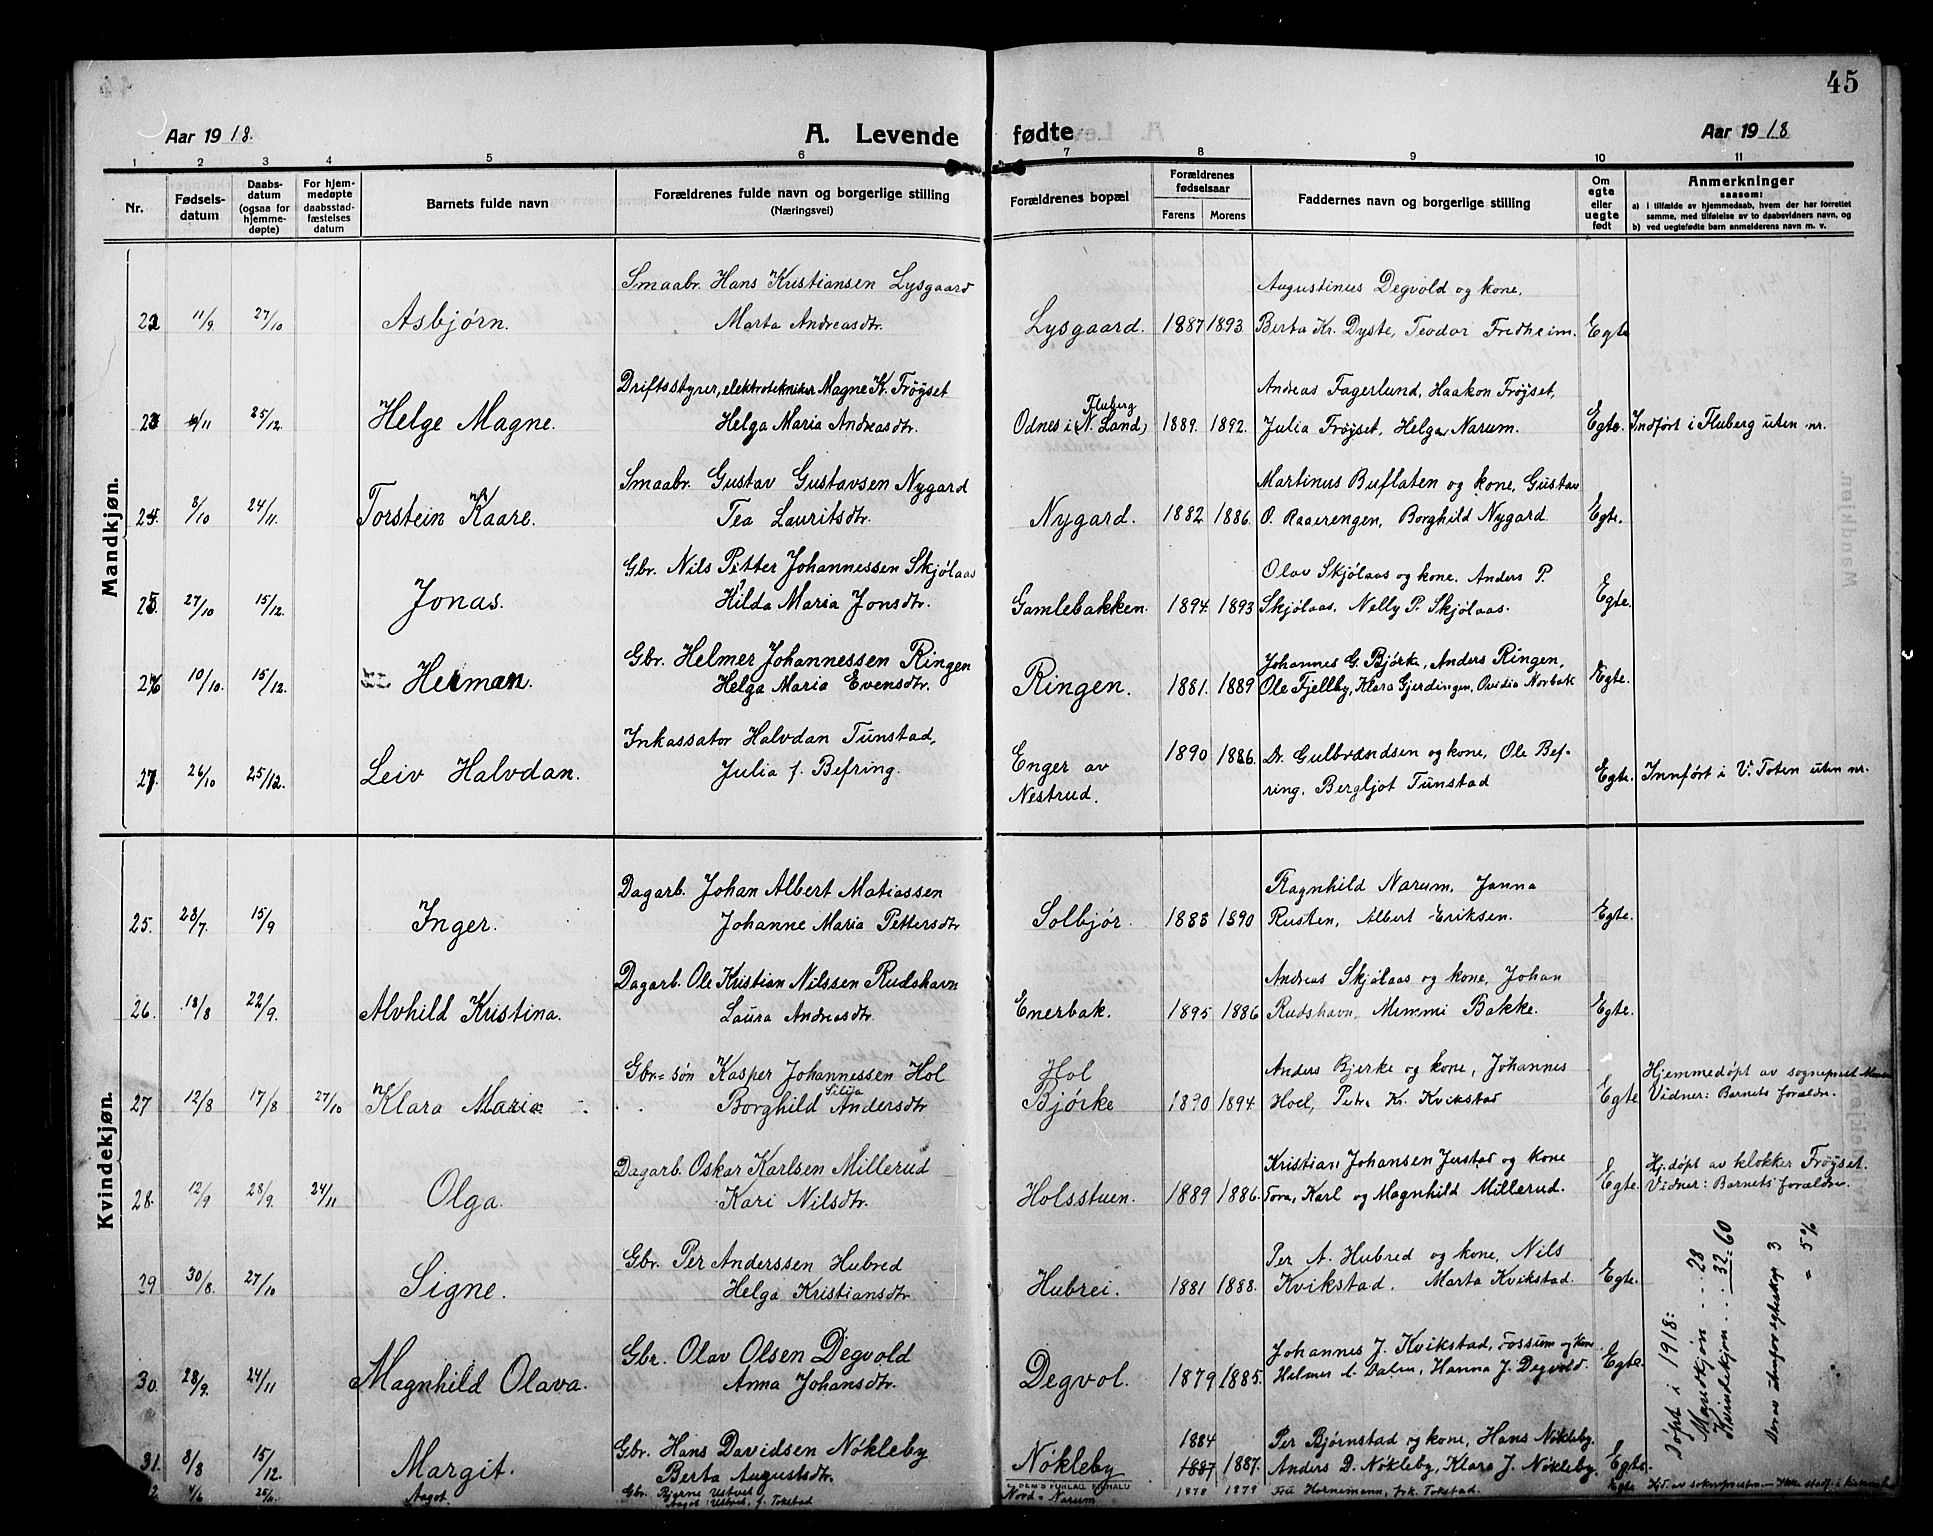 45
Aar 1918.
A. Levende fødte
Aar 1918
1 2 3 4 5 6 7 8 9 10 11
Nr.
Fødselsdatum
Daabsdatum (ogsaa for hjemmedøpte)
For hjemmedøpte daabsstadfæstelses datum
Barnets fulde navn
Forældrenes fulde navn og borgerlige stilling
(Næringsvei)
Forældrenes bopæl
Forældrenes fødselsaar
Farens Morens
Faddernes navn og borgerlige stilling
Om egte eller uegte født
Anmerkninger
saasom:
a) i tilfælde av hjemmedaab, hvem der har forrettet
samme, med tilføielse av to daabsvidners navn, og
b) ved uegtefødte barn anmelderens navn m. v.
Mandkjøn.
Smaabr. Hans Kristiansen Lysgaard Augustinus Degvold og kone,
22 11/9 27/10 Asbjørn. Marta Andreasdtr. Lysgaard. 1887 1893. Berta Kr. Dyste, Teodor Fredheim. Egte
Driftsstyrer, elektrotekniker Magne K. Frøyset Fluberg Andreas Fagerlund, Haakon Frøyset,
23 4/11 25/12. Helge Magne. Helga Maria Andreasdtr. Odnes i (N. Land) 1889. 1892. Julia Frøyset, Helga Narum. Egte. Indført i Fluberg uten nr.
Smaabr. Gustav Gustavsen Nygard Martinus Buflaten og kone, Gustav
24. 8/10 24/11. Torstein Kaare. Tea Lauritsdtr. Nygard. 1882 1886. O. Raaerengen, Borghild Nygard. Egte.
Gbr. Nils Petter Johannessen Skjølaas Olav Skjølaas og kone, Anders P.
25. 27/10 15/12. Jonas. Hilda Maria Jonsdtr. Gamlebakken. 1894. 1893 Skjølaas, Nelly P. Skjølaas. Egte.
Gbr. Helmer Johannessen Ringen Johannes G. Bjørke, Anders Ringen,
26 10/10. 15/12. Herman. Helga Maria Evensdtr. Ringen. 1881. 1889 Ole Fjellby, Klara Gjerdingen, Ovidia Norbak Egte.
Inkassator Halvdan Tunstad, Enger av 1890 1886. Dr. Gulbrandsen og kone, Ole Bef-
27. 26/10 25/12. Leiv Halvdan. Julia f. Befring. Nestrud. ring, Bergljot Tunstad Egte. Innført i V. Toten uten nr.
Kvindekjøn.
Dagarb. Johan Albert Matiassen Ragnhild Narum, Janna
25. 23/7. 15/9 Inger. Johanne Maria Pettersdtr Solbjør. 1883 1890 Rusten, Albert Eriksen. Egte.
Dagarb. Ole Kristian Nilssen Rudshavn Andreas Skjølaas og kone, Johan
26. 18/8 22/9. Alvhild Kristina. Laura Andreasdtr. Enerbak. 1895 1886 Rudshavn, Mimmi Bakke. Egte.
Gbr-søn Kasper Johannessen Hol Hol Anders Bjerke og kone, Johannes Hjemmedøpt av sogneprest
27 12/8 17/8 27/10 Klara Maria. Borghild Silija Andersdtr Bjørke 1890 1894 Hoel, Petra Kr. Kvikstad Egte Vidner: Barnets forældre.
Dagarb. Oskar Karlsen Millerud Kristian Johansen Jerstad og kone Hj.døpt av klokker Frøyset.
28. 12/9 28/9. 24/11 Olga. Kari Nilsdtr. Holsstuen. 1889 1886. Tora, Karl og Magnhild Millerud. Egte. Vidner: Barnets forældre.
Gbr. Per Anderssen Hubred Per A. Hubred og kone, Nils
29 30/8. 27/10 Signe. Helga Kristiansdtr Hubrei. 1881 1888. Kvikstad, Marta Kvikstad. Egte.
Gbr. Olav Olsen Degvold Johannes J. Kvikstad, Fossum og kone
30. 28/9. 24/11 Magnhild Olava. Anna Johansdtr. Degvol. 1879 1885. Hanna J. Degvold Egte.
Gbr. Hans Davidsen Nøkleby 1884 Per Bjørnstad og kone, Hans Nøkleby.
31. 8/8 15/12. Margit. Berta Augustsdtr. Nøkleby 1887 1887. Anders D. Nøkleby, Klara J. Nøkleby. Egte.
4/6 25/6. Aagot. Gbr. Bjarne Ustvet Nord-Narum 1878 1879 Fru Hornemann, frk. Tokstad. Egte
Aagot Ustvet, f. Tokstad
Døpt i 1918:
Mandkjøn ... 28
Kvindekjøn ... 32 = 60
Derav utenfor egteskap 3
= 5%